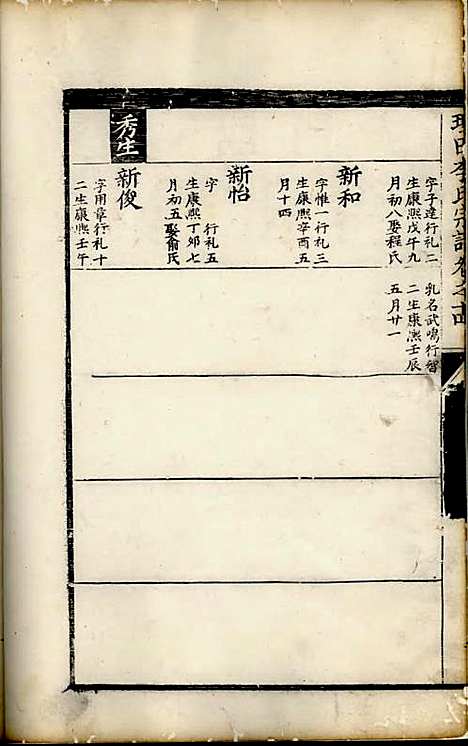 李氏宗譜卷之十四
字子達行礼二
生康熙戊午九
月初八娶程氏
乳名武鳴行智
二生康熙壬辰
五月廿一
新和
字惟一行礼三
生康熙辛酉五
月十四
新怡
字　行礼五
生康熙丁卯七
月初五娶俞氏
秀生
新俊
字用章行礼十
二生康熙壬午